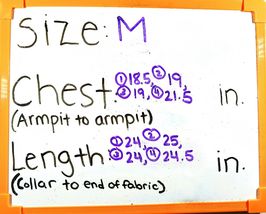 Size: M
Chest: ①18.5, ②19,
③19, ④21.5 in.
(Armpit to armpit)
Length: ①24, ②25,
③24, ④24.5 in.
(Collar to end of fabric)